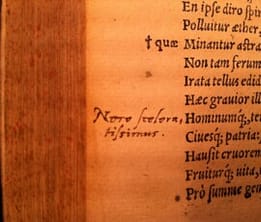 En ipse diro spir
Polluitur æther,
† quæ Minantur astra
Non tam ferum
Irata tellus edidi
Hæc gravior ill
Nero scelera,
tissimus.
Hominumq́; te
Ciuesq́; patria:
Hausit cruorem
Fruiturq́; uita,
Prò summe gen